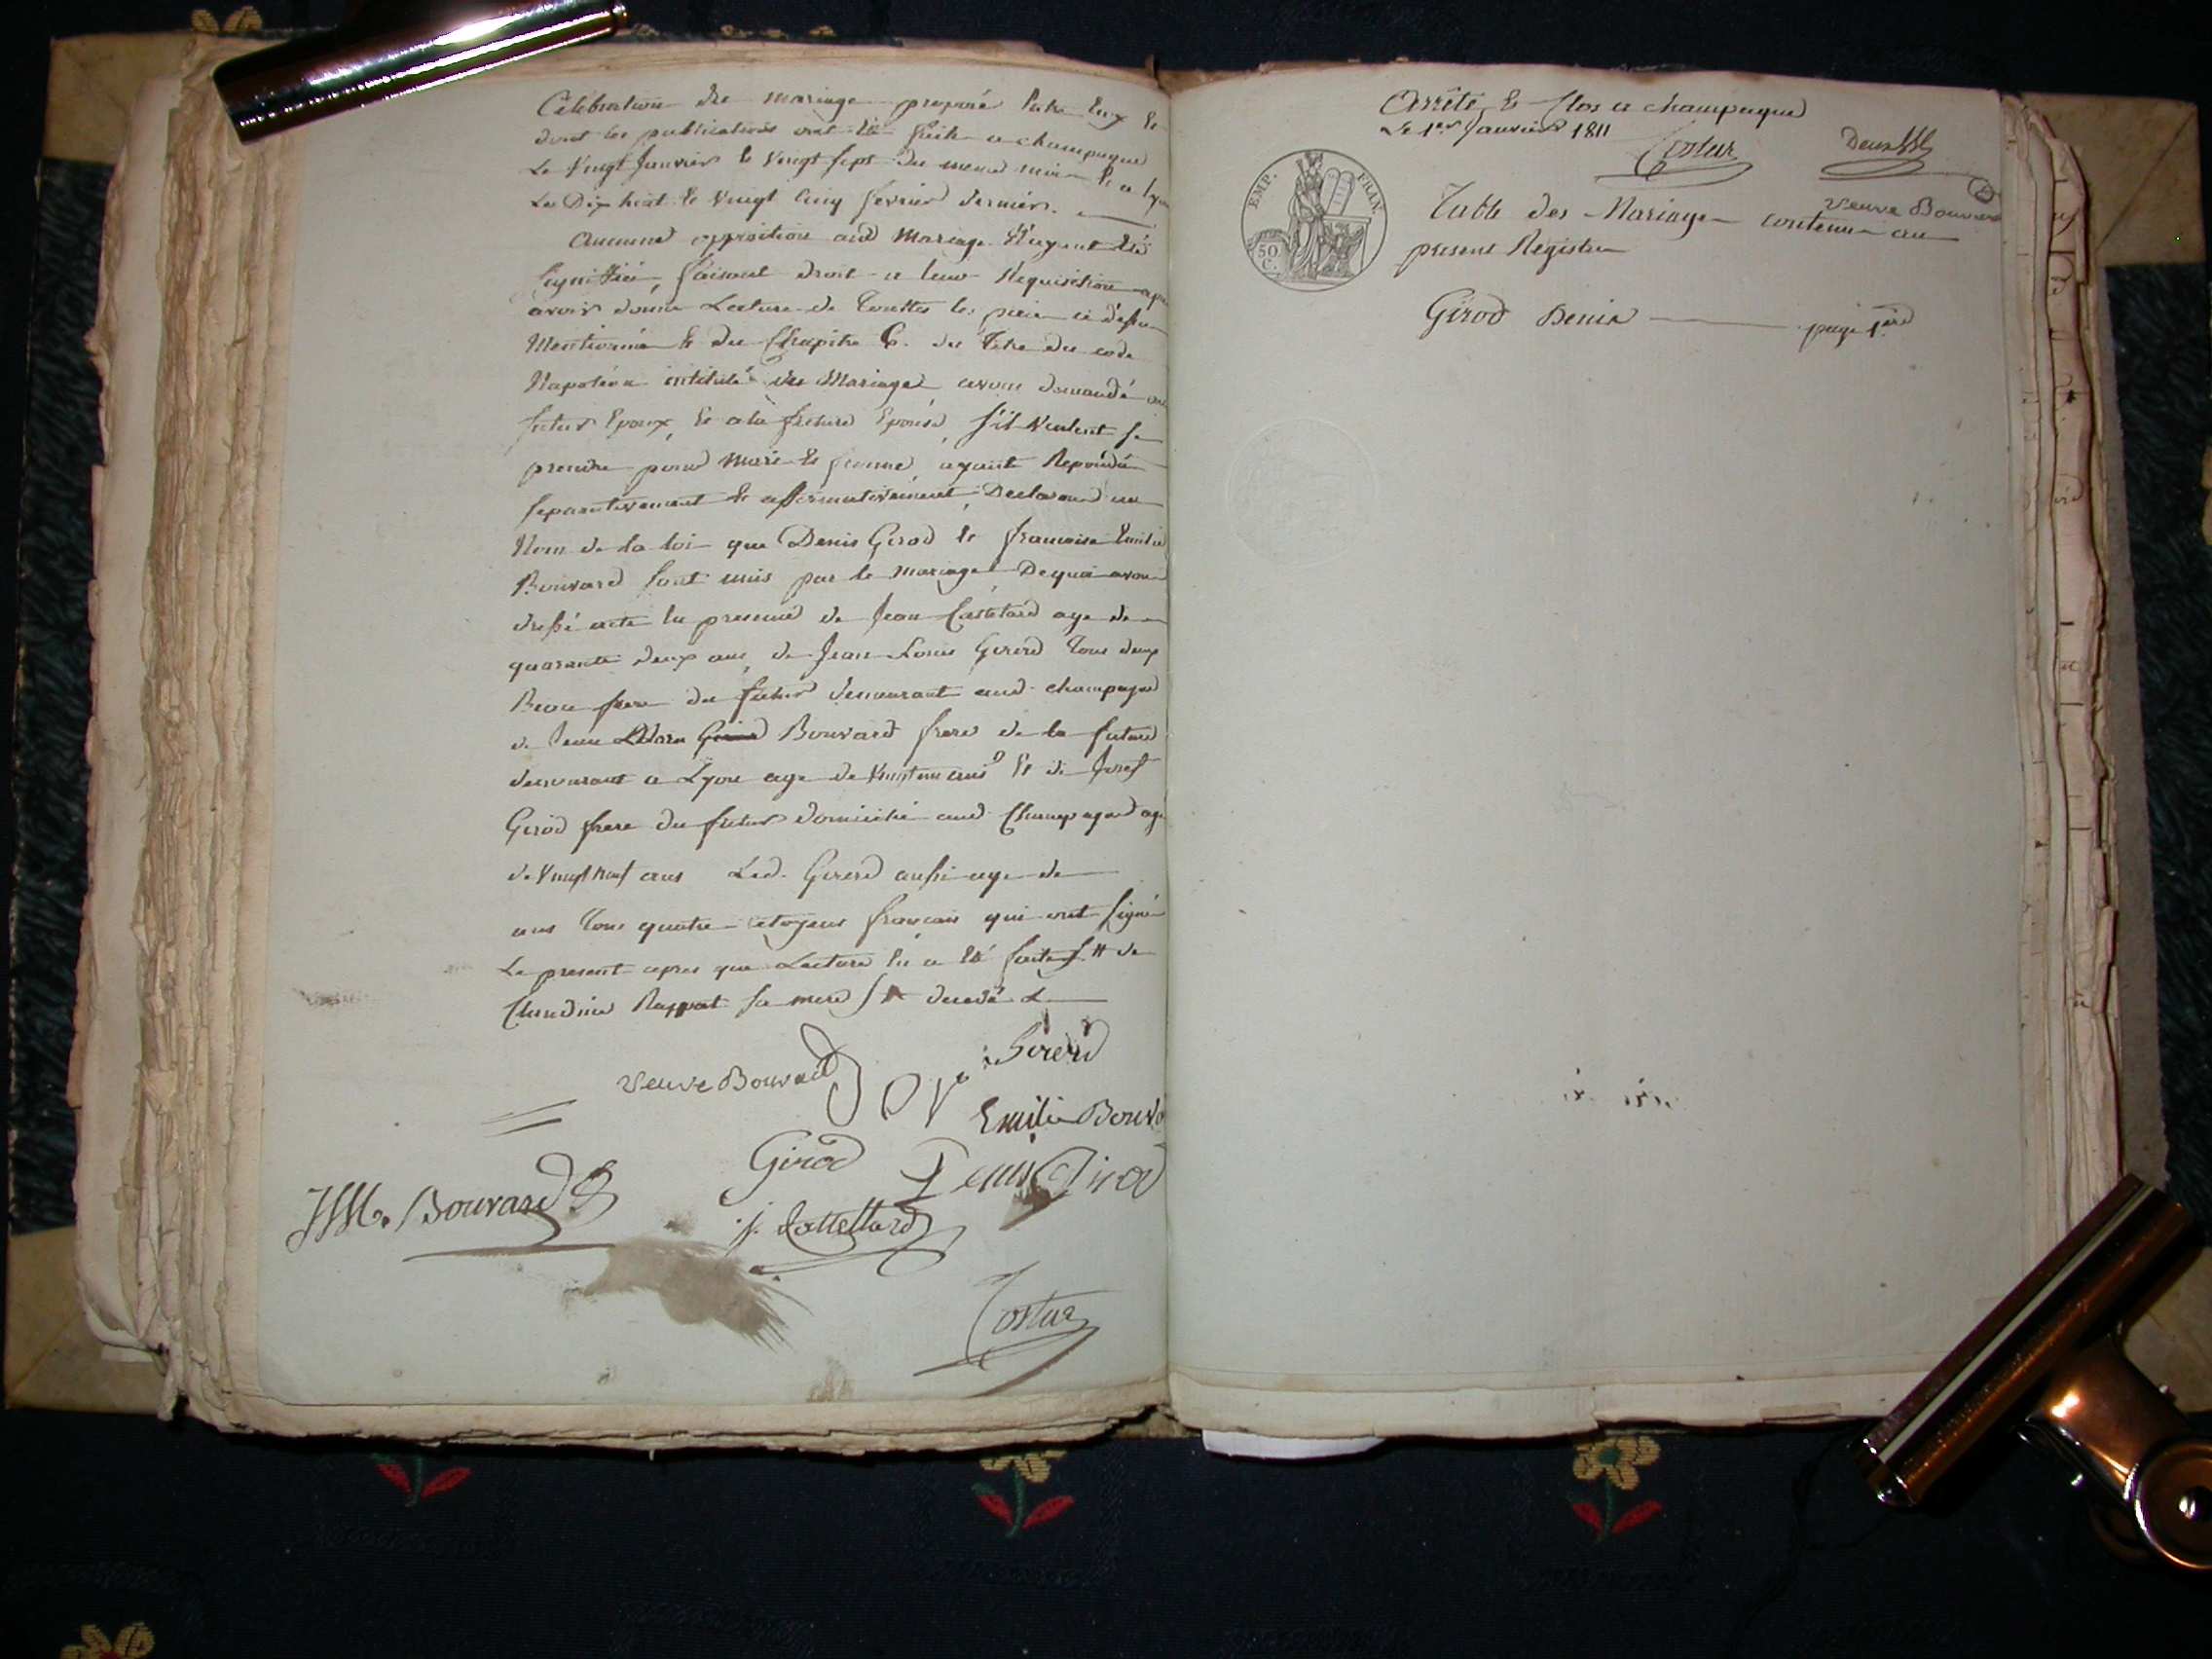 Célébration du mariage projetté Entre Eux Et
dont les publications ont été faite a champagne
Le Vingt Janvier le Vingt sept du meme mois Et a Lyon
Le Dix huit le Vingt Cinq fevrier dernier.
Aucune opposition aud Mariage N'ayant Eté
Signifiée, faisant droit a leur Requisition apre
avoir donné Lecture de Touttes les piece ci dessu
Mentionné Et du Chapitre 6. du Titre du code
Napoléon intitulé des Mariages avons demandé au
futur Epoux, Et a la future Epouse, s'il Veulent se
prendre pour Mari Et femme, ayant Repondu
separativement Et affirmativement, Declarons au
Nom de la loi que Denis Girod Et francoise Emilie
Bouvard sont unis par le mariage De quoi avons
dressé acte En presence de Jean Castelard age de
quarante deux ans, de Jean Louis Gererd Tous deux
Beau frere du futur demeurant aud. champagne
de Jean Bouvard frere de la future
demeurant a Lyon age de Vingt un ans Et de Josef
Girod frere du futur domicilié aud. Champagne age
de Vingt Neuf ans Led. Gererd aussi age de
ans Tous quatre citoyens francais qui ont signé
Le present apres que Lecture En a Eté faite # de
Claudine Rappat sa mere decedé
Veuve Bouvard
Gererd
Emilie Bouva
Girod Denis Girod
JM. Bouvard
j. Cattellard
Costaz
Arrêté & Clos a champagne
Le 1er Janvier 1811
Costaz
EMP. FRAN.
50 C.
Veuve Bouvard
Table des Mariage contenu au
present Registre
Girod Denis page 1ere